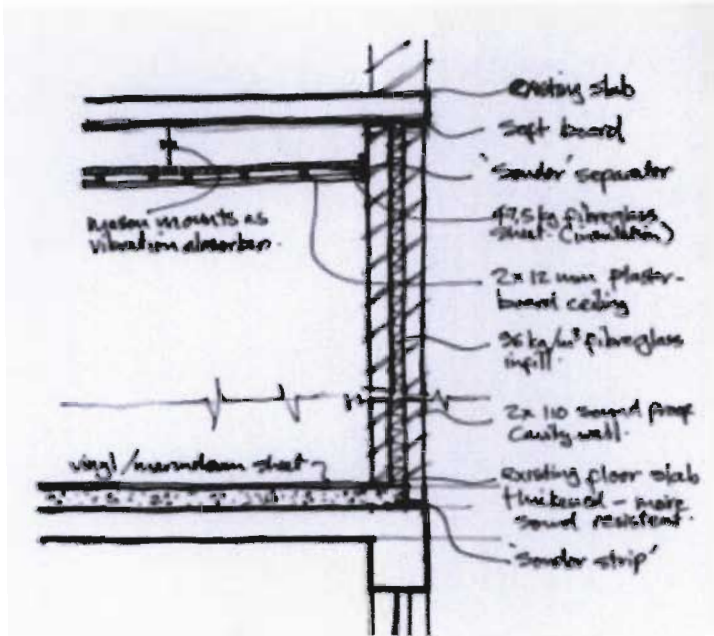 existing slab
Soft board
'Sondor' separator
47,5 kg fibreglass
sheet (insulation)
mounts as
vibration absorber.
2x 12 mm plaster-
board ceiling
96 kg/m³ fibreglass
infill.
2x 110 sound proof
cavity wall.
vinyl/ sheet
existing floor slab
thickened - more
sound resistent.
'Sondor strip'